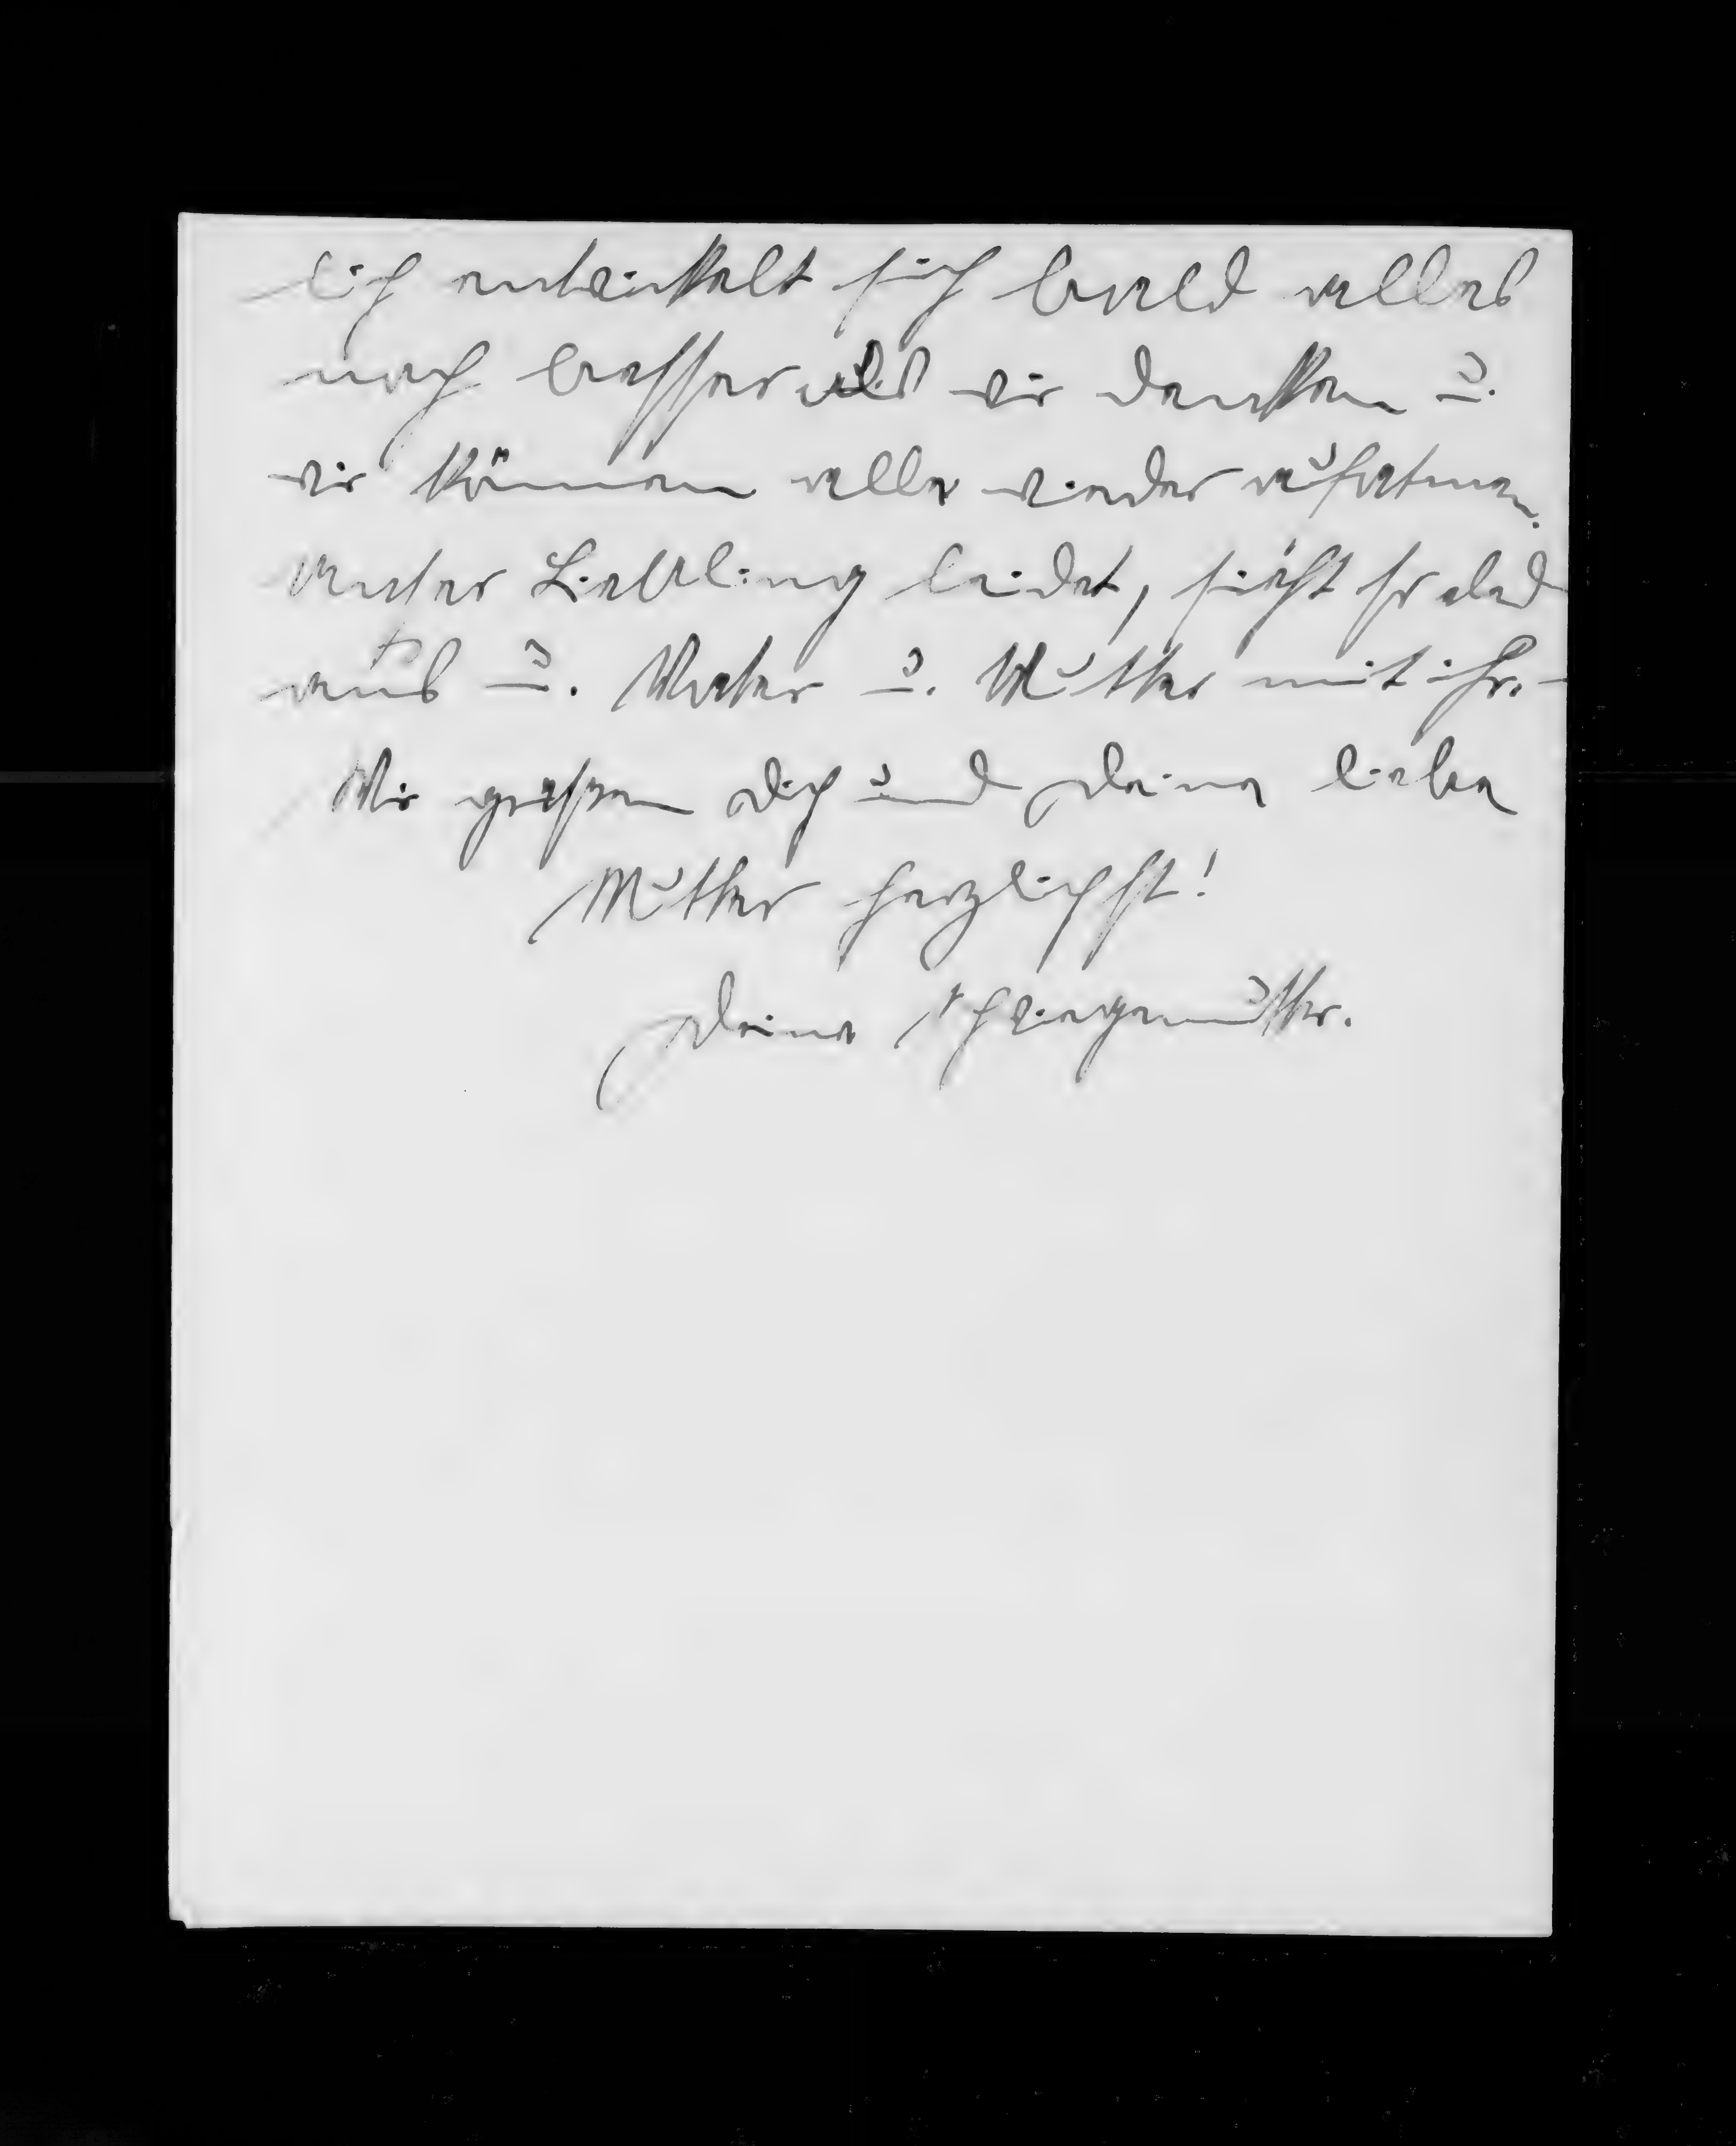 lich entwickelt sich bald alles
noch besser als wir denken u.
wir können alle wieder aufatmen.
Unser Liebling leidet, sieht so elend
aus u. Vater u. Mutter mit ihr. –
Wir grüßen Dich und Deine liebe
Mutter herzlichst!
Deine Schwiegermutter.